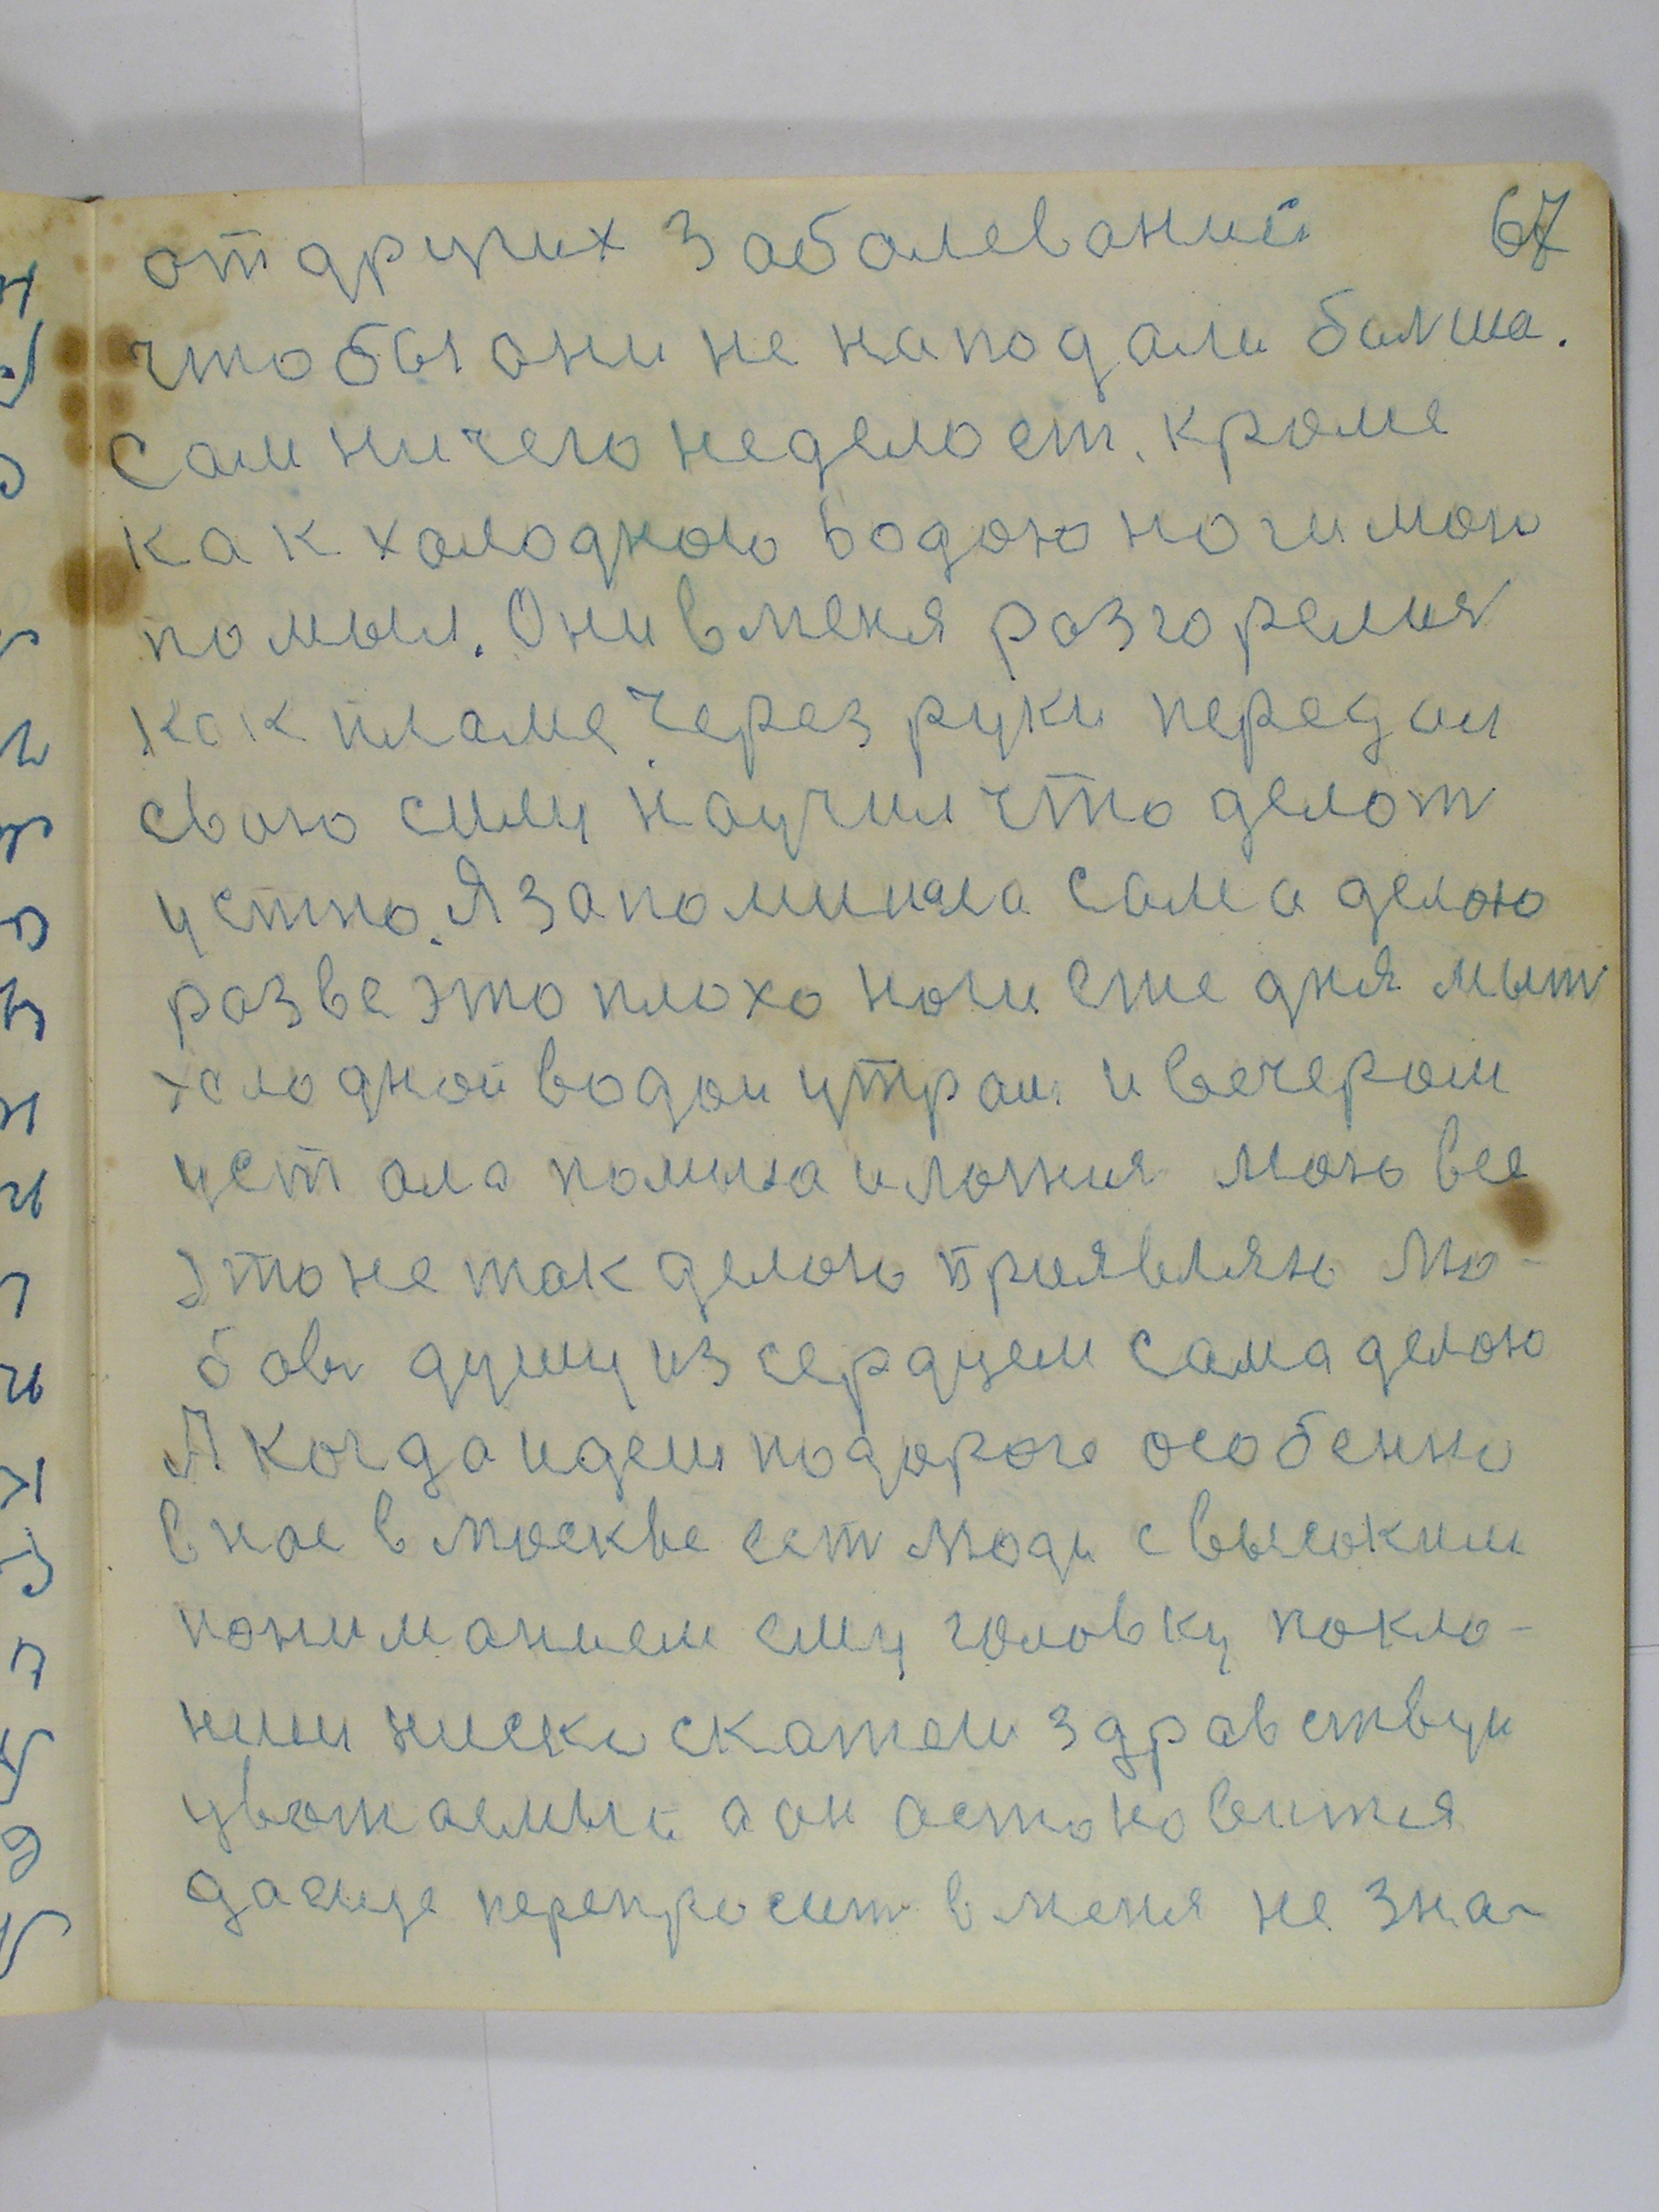 67
от других заболеваний
чтобы они не наподали болша.
Сам ничего неделоет. кроме
как холодною водою ноги мои
помыл. Они в меня розгорелия
как пламе, Через руки передал
свою силу научил что делот
устно. Я запоминала сама делою
розве это плохо ноги сже дня мыт
холодной водои утрам и вечером
устала помыла и ложия мою все
это не так делоюприявляю лю-
бовь душу из сердцем сама делою
А когда идеш подороге особенно
в нос в москве ест люди с высоким
пониманием ему головку покло-
ниш ниско скажеш здравствуи
уважаемый а он остоновится
да еще перепросит в меня не зна-